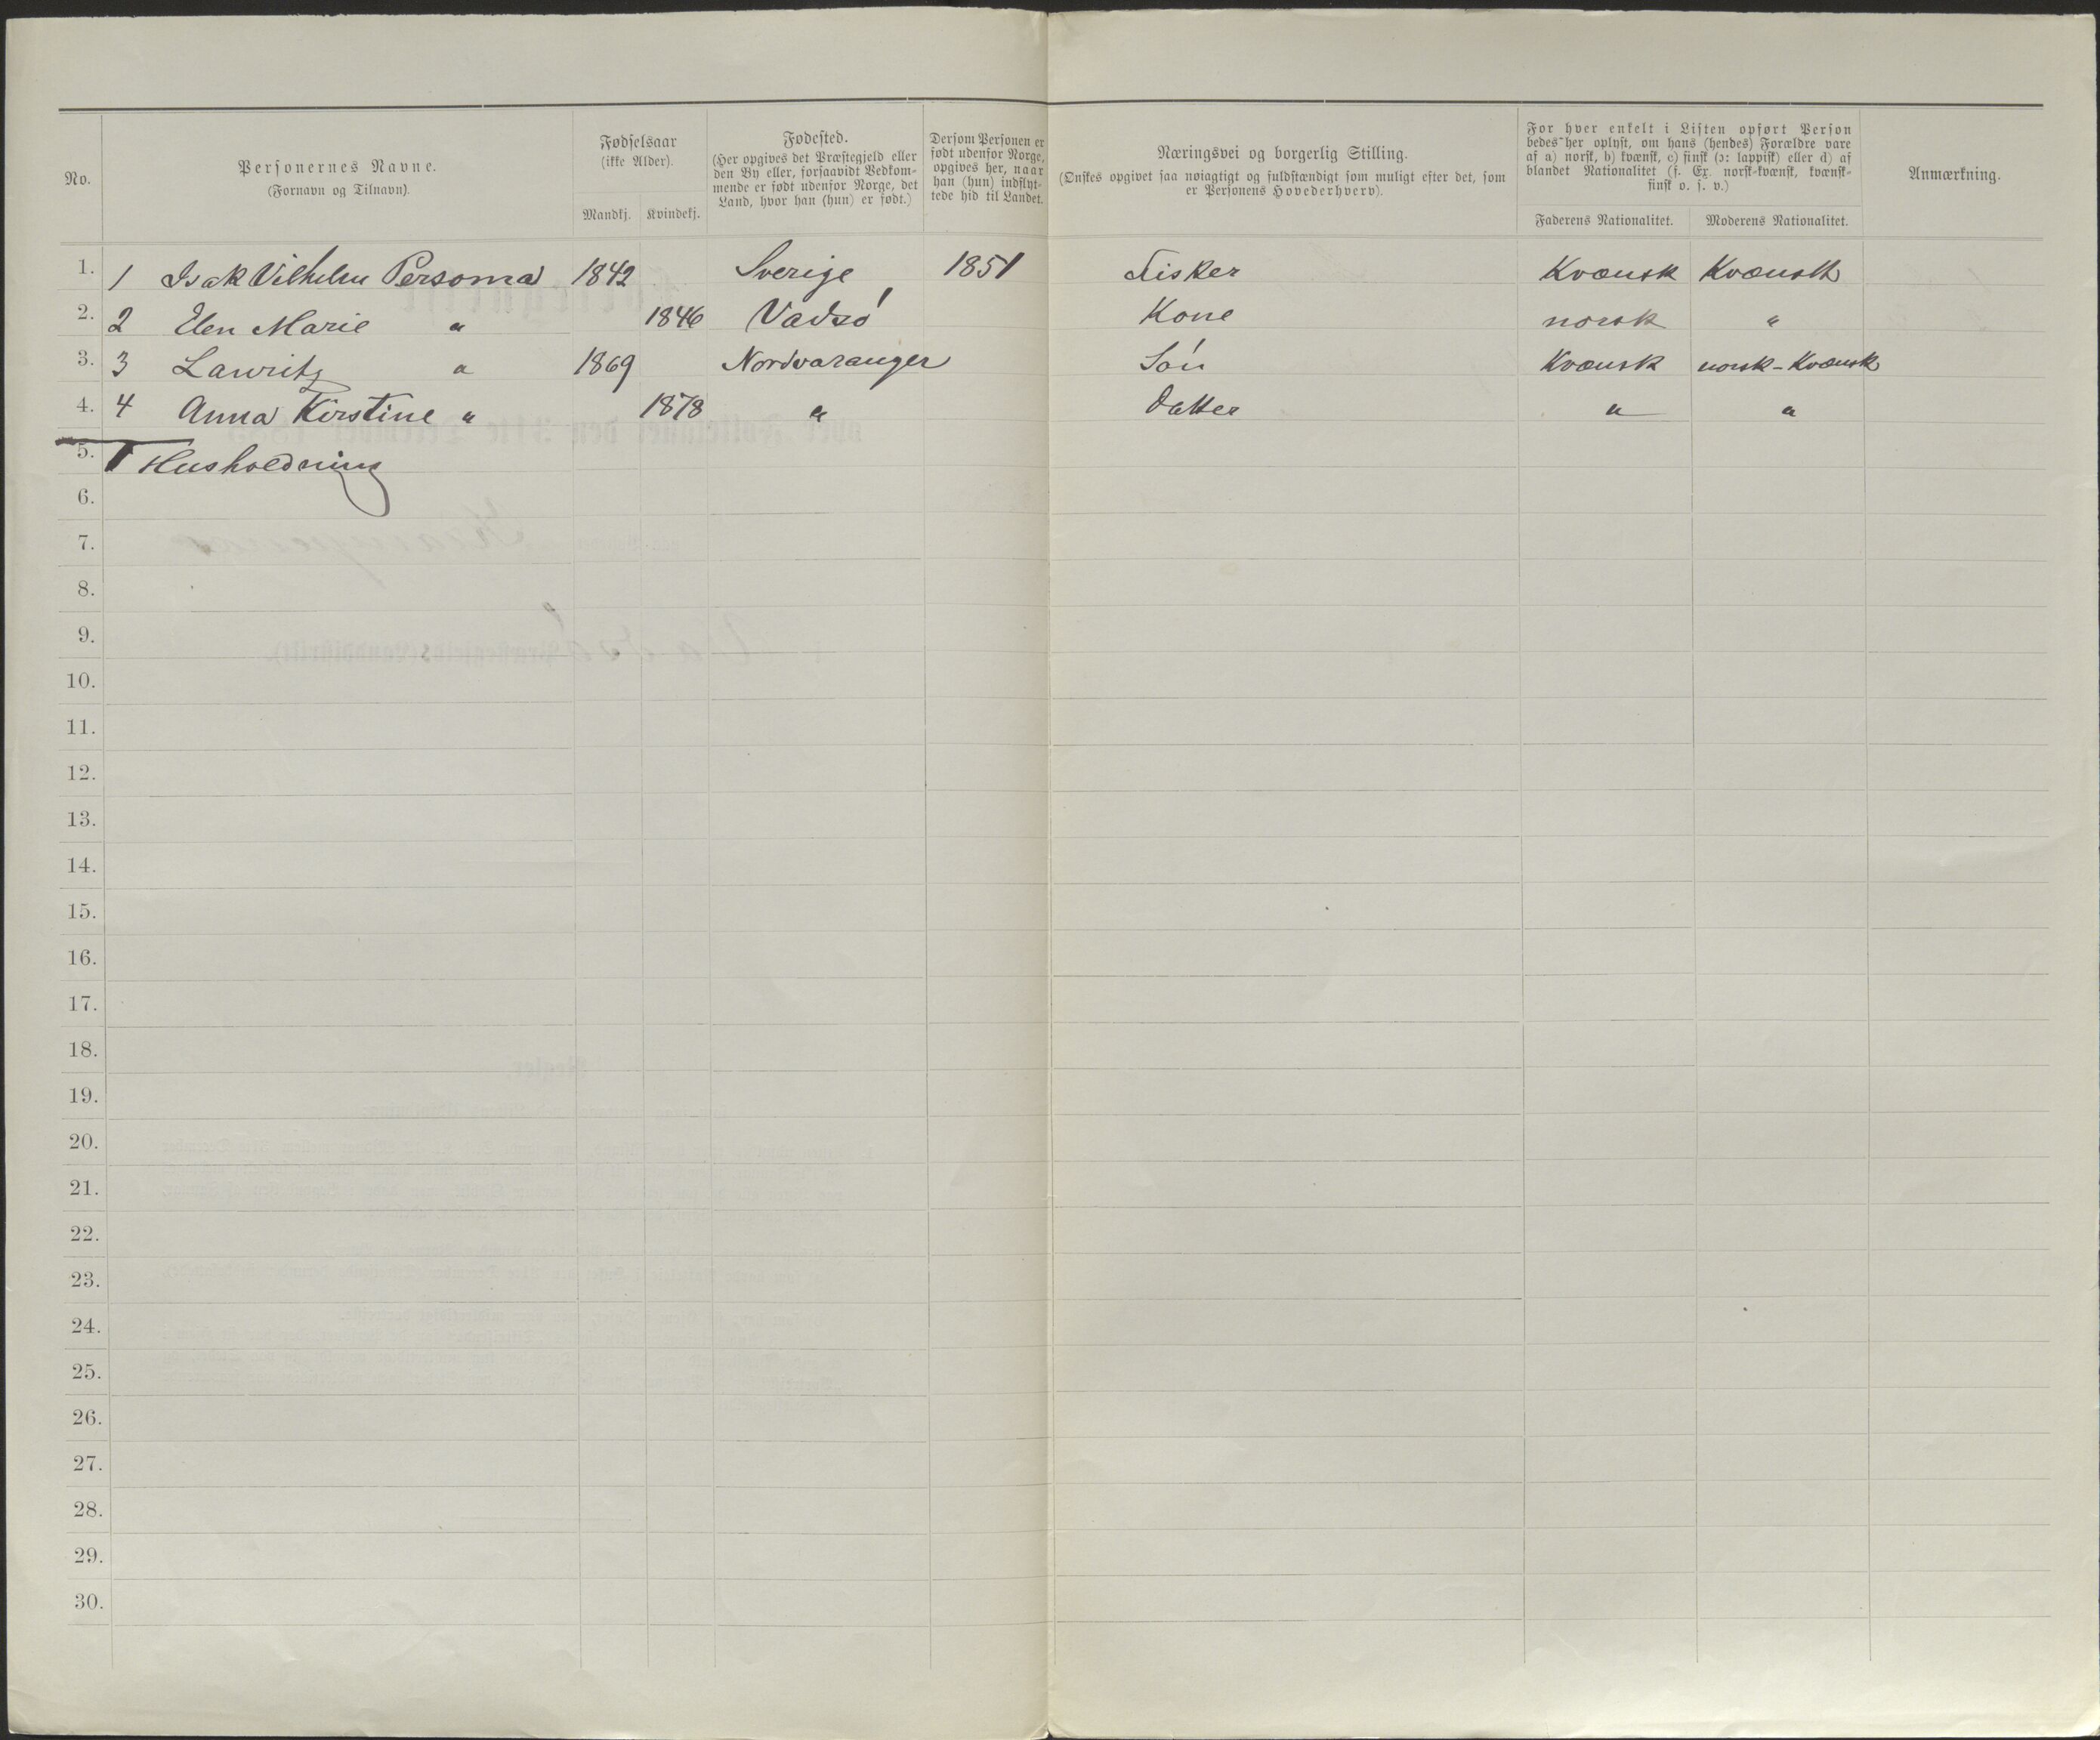 No.
Personernes Navne.
(Fornavn og Tilnavn).
Fødselsaar
(ikke Alder).
Mandkj. Kvindekj.
Fødested.
(Her opgives det Præstegjeld eller
den By eller, forsaavidt Vedkom-
mende er født udenfor Norge, det
Land, hvor han (hun) er født.)
Dersom Personen er
født udenfor Norge,
opgives her, naar
han (hun) indflyt-
tede hid til Landet.
Næringsvei og borgerlig Stilling.
(Ønskes opgivet saa nøiagtigt og fuldstændigt som muligt efter det, som
er Personens Hovederhverv).
For hver enkelt i Listen opført Person
bedes her oplyst, om hans (hendes) Forældre vare
af a) norsk, b) kvænsk, c) finsk (ɔ: lappisk) eller d) af
blandet Nationalitet (f. Ex. norsk-kvænsk, kvænsk-
finsk o. s. v.)
Faderens Nationalitet. Moderens Nationalitet.
Anmærkning.
1. 1 Isak Vilhelm Persoma 1842 Sverige 1851 Fisker Kvænsk Kvænsk
2. 2 Elen Marie " 1846 Vadsø Kone norsk "
3. 3 Lauritz " 1869 Nordvaranger Søn Kvænsk norsk-Kvænsk
4. 4 Anna Kirstine " 1878 " Datter " "
5. 1 Husholdning
6.
7.
8.
9.
10.
11.
12.
13.
14.
15.
16.
17.
18.
19.
20.
21.
22.
23.
24.
25.
26.
27.
28.
29.
30.